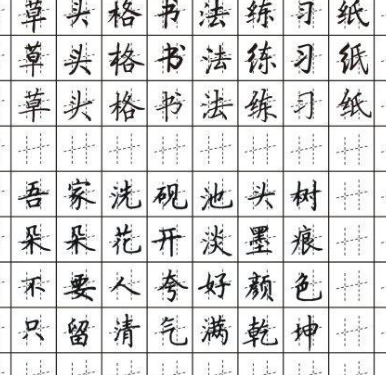 草头格书法练习纸
草头格书法练习纸
草头格书法练习纸
吾家洗砚池头树
朵朵花开淡墨痕
不要人夸好颜色
只留清气满乾坤